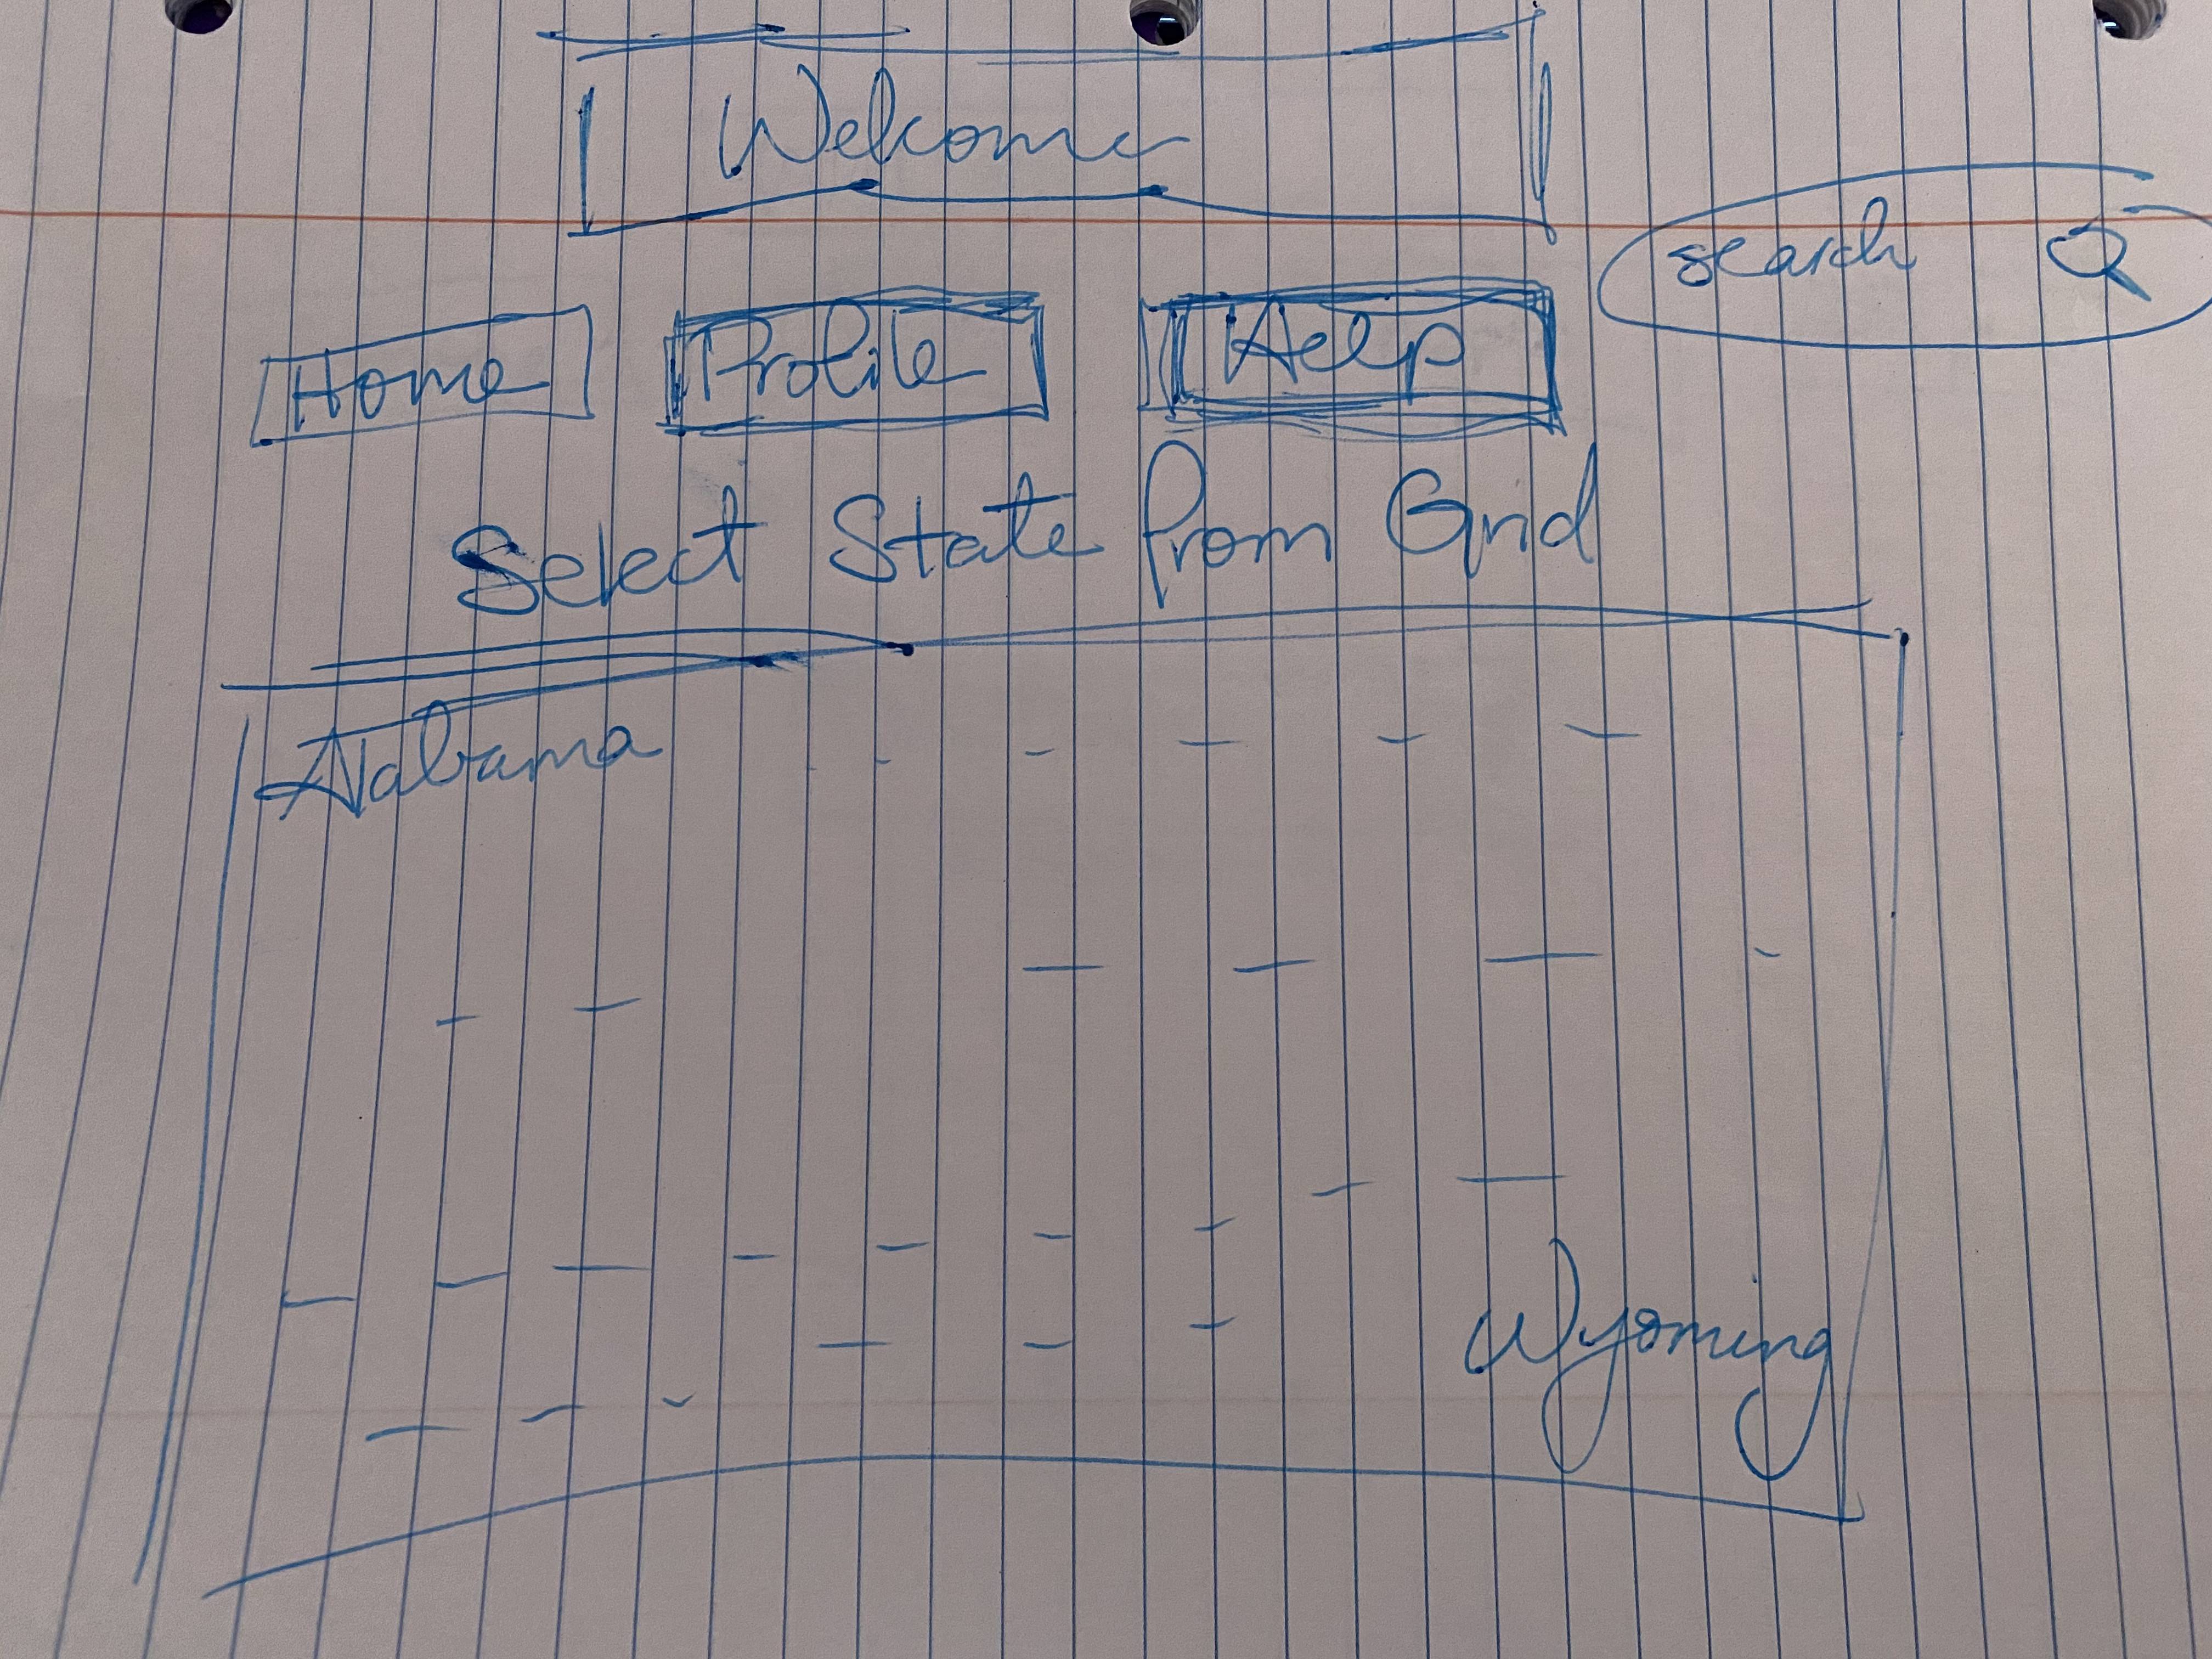 Welcome
search
Home Profile Help
Select State from Grid
Alabama
Wyoming